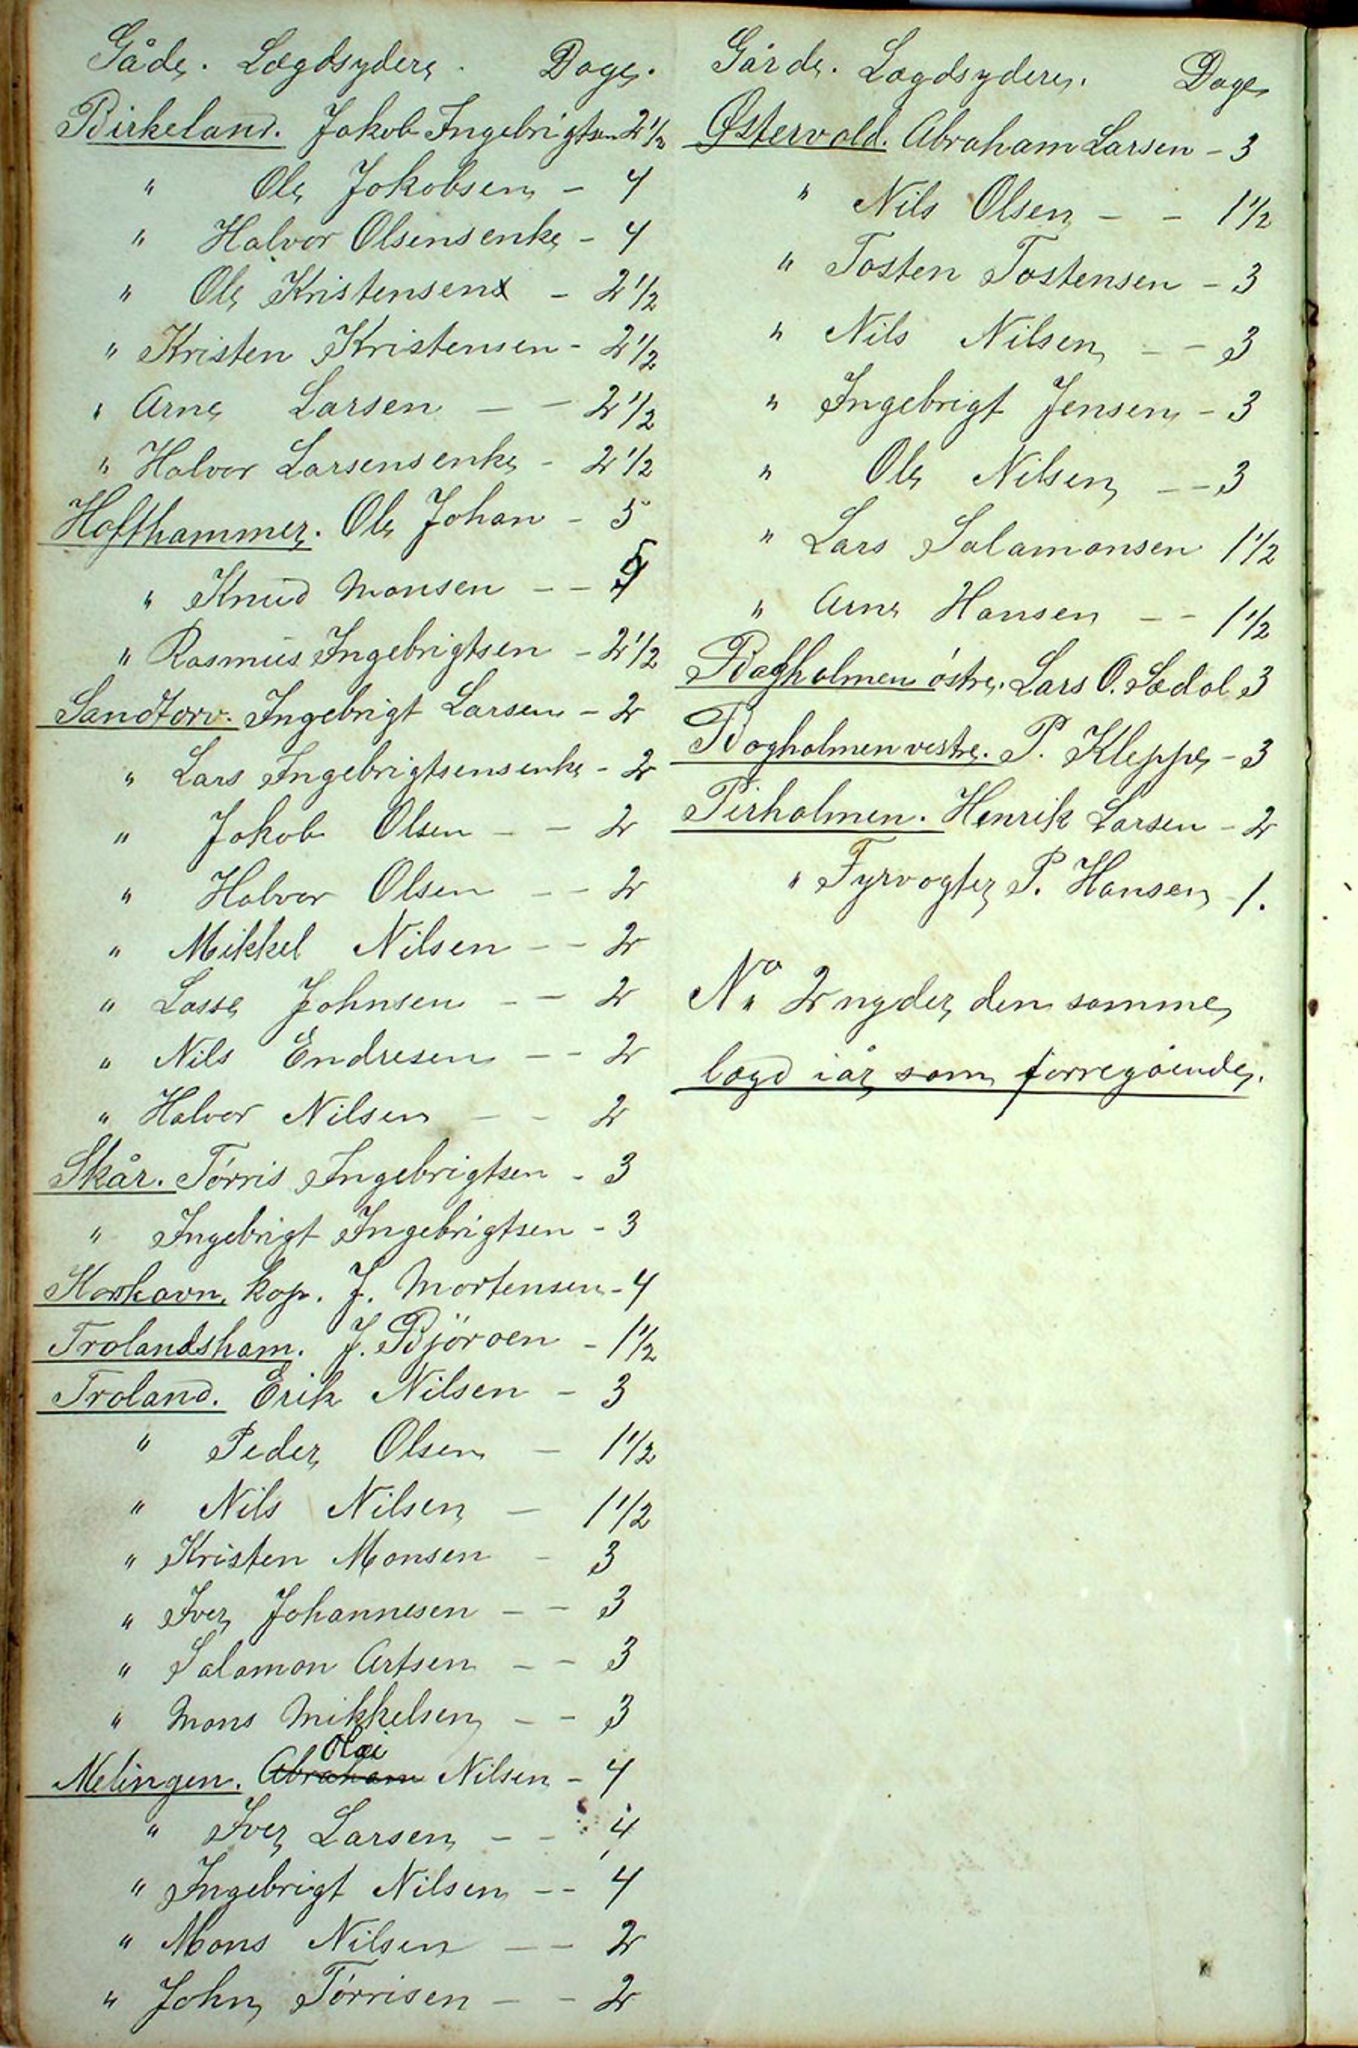 Gåde. Lægdsydere. Dage.
Birkeland. Jakob Ingebrigtsen 2 1/2
" Ole Jakobsen - 4
" Halvor Olsens enke - 4
" Ole Kristensen - 2 1/2
" Kristen Kristensen - 2 1/2
" Arne Larsen - - 2 1/2
" Halvor Larsens enke - 2 1/2
Hofthammer. Ole Johan - 5
" Knud Monsen - - 5
" Rasmus Ingebrigtsen - 2 1/2
Sandtorv. Ingebrigt Larsen - 2
" Lars Ingebrigtsens enke - 2
" Jakob Olsen - - 2
" Halvor Olsen - - 2
" Mikkel Nilsen - - 2
" Lasse Johnsen - - 2
" Nils Endresen - - 2
" Halvor Nilsen - - 2
Skår. Tórris Ingebrigtsen - 3
" Ingebrigt Ingebrigtsen - 3
Korshavn, kop. J. Mortensen - 4
Trolandsham. J. Björoen - 1 1/2
Troland. Erik Nilsen - 3
" Peder Olsen - 1 1/2
" Nils Nilsen - 1 1/2
" Kristen Monsen - 3
" Iver Johannesen - - 3
" Salamon Artsen - - 3
" Mons Mikkelsen - - 3
Olai
Melingen. Abraham Nilsen - 4
" Iver Larsen - - 4
" Ingebrigt Nilsen - - 4
" Mons Nilsen - - 2
" John Tórrisen - - 2
Gårde. Lægdsydere. Dage
Østervold. Abraham Larsen - 3
" Nils Olsen - - 1 1/2
" Tosten Tostensen - 3
" Nils Nilsen - - 3
" Ingebrigt Jensen - 3
" Ole Nilsen - - 3
" Lars Salamonsen 1 1/2
" Arne Hansen - - 1 1/2
Bagholmen óstre. Lars O. Lædal 3
Bogholmen vestre. P. Kleppe - 3
Pirholmen. Henrik Larsen - 2
" Fyrvogter P. Hansen - 1.
No 2 nyder den samme
lægd i år som forregående.